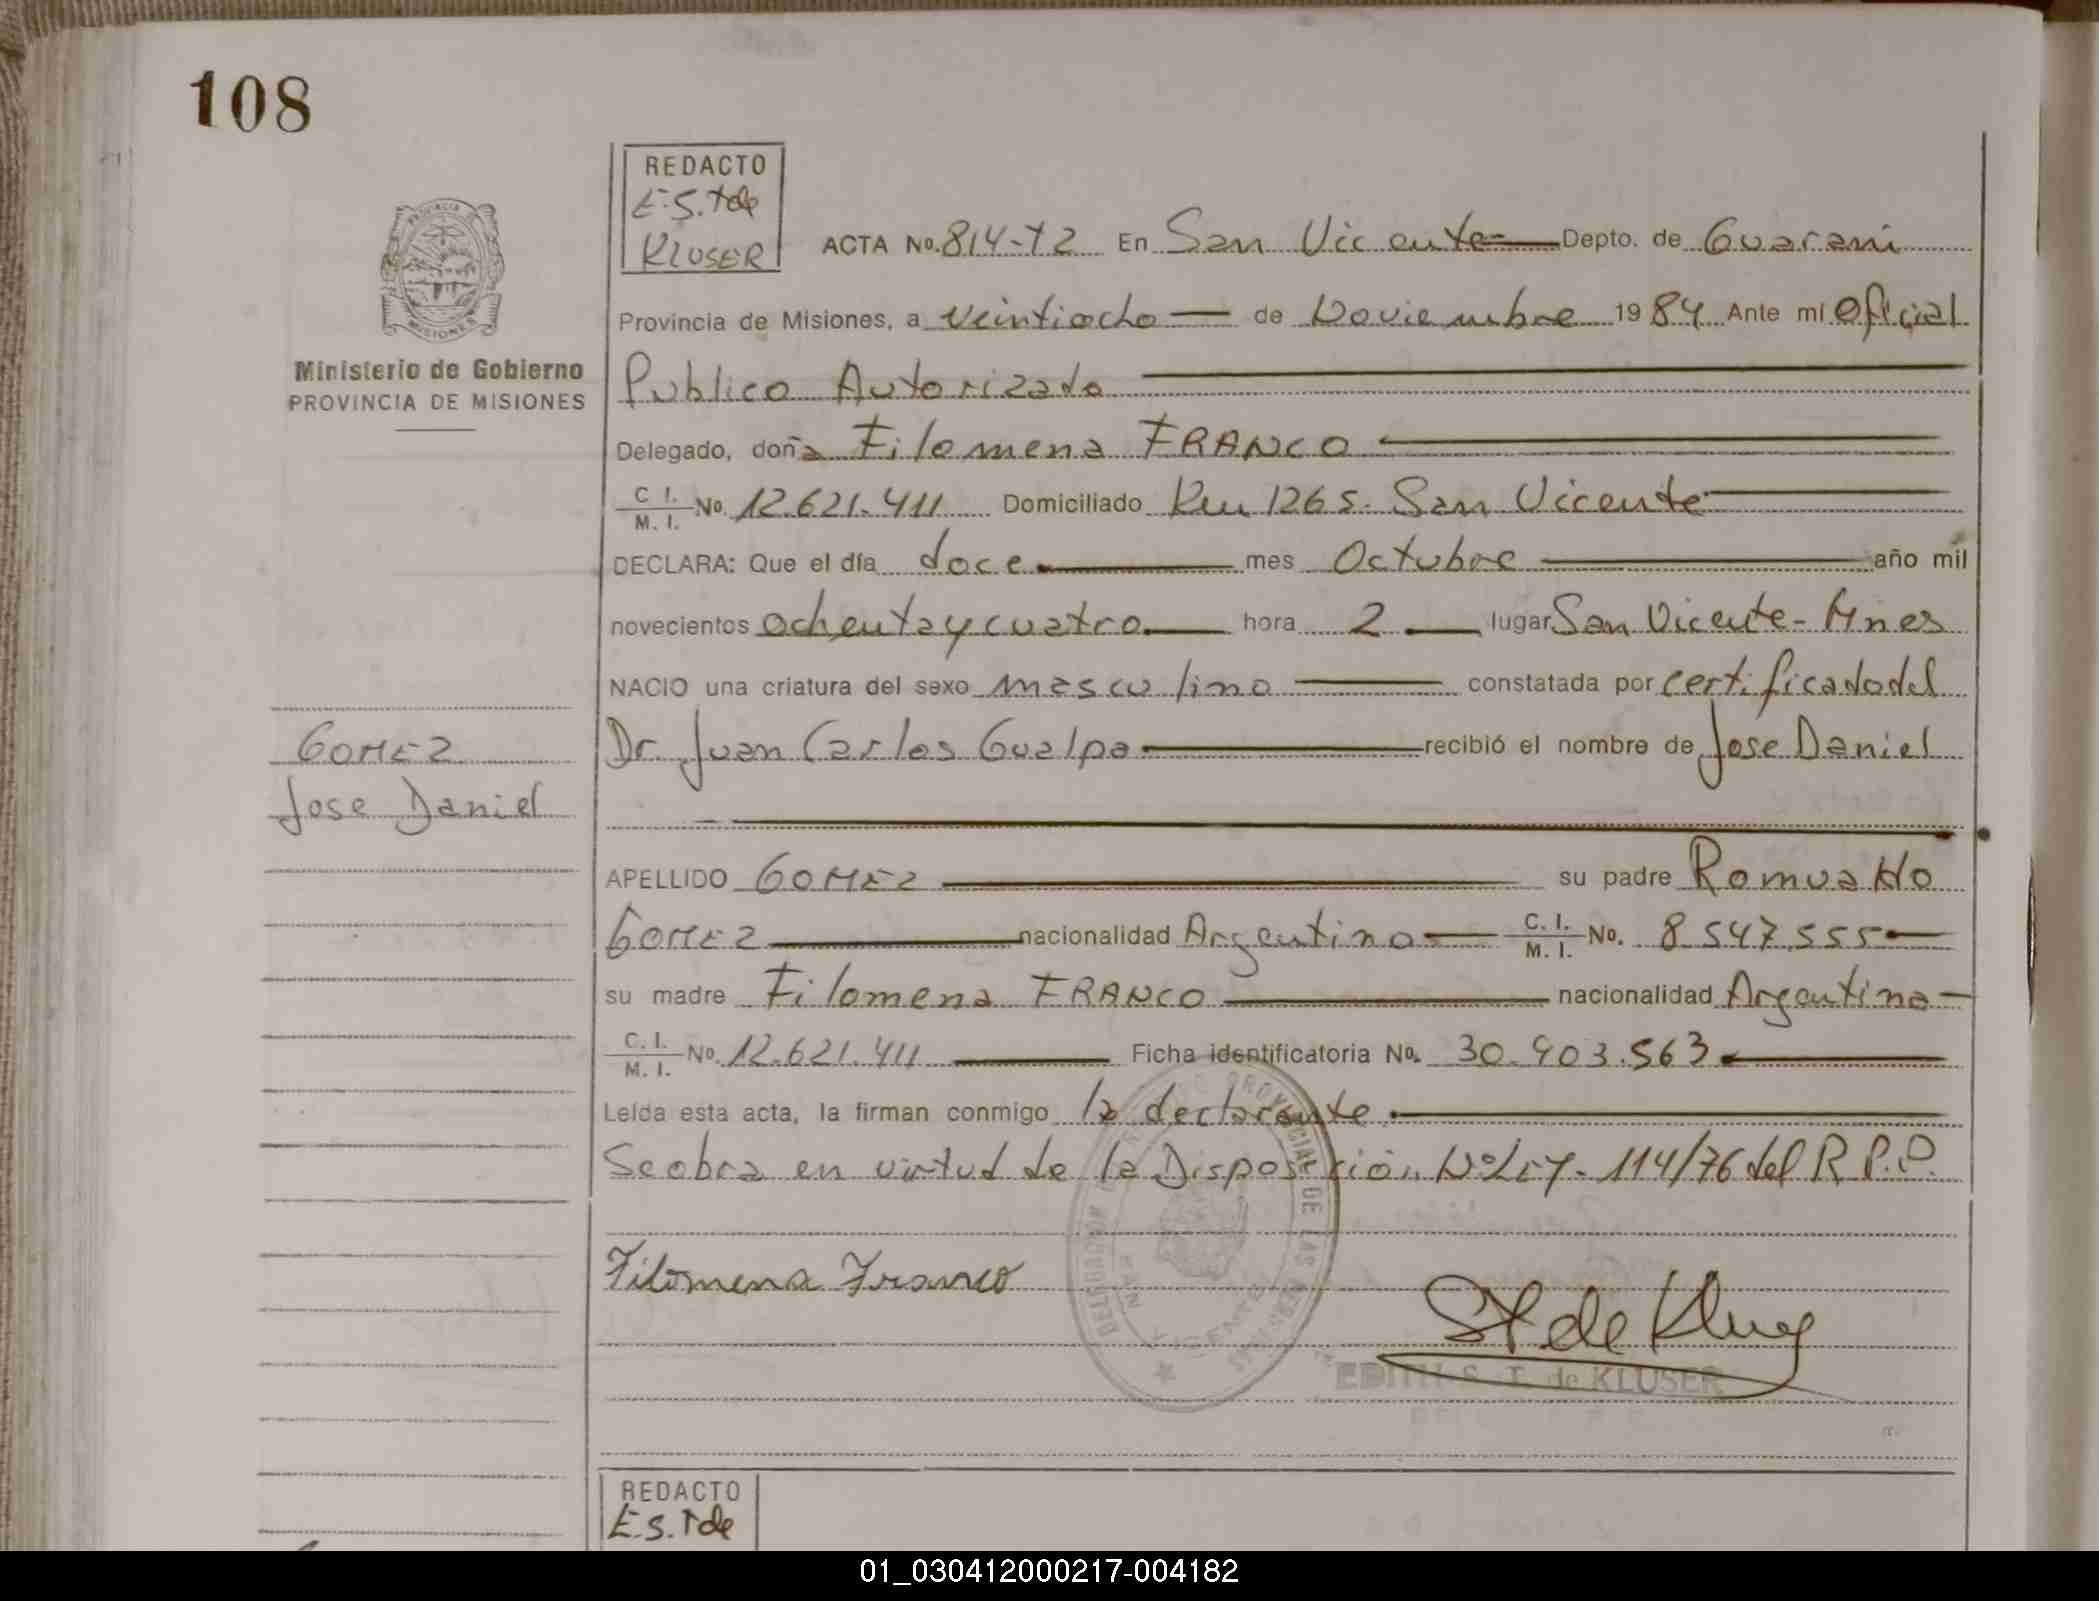 108
REDACTO
E.S.T de
KLUSER
ACTA No. 814-T2 En San Vicente Depto. de Guarani
Provincia de Misiones, a veintiocho de Noviembre 1984 Ante mí Oficial
Ministerio de Gobierno
PROVINCIA DE MISIONES
Publico Autorizado
Delegado, doña Filomena FRANCO
C. I. M. I. No. 12.621.411 Domiciliado Km 1265. San Vicente
DECLARA: Que el día doce mes Octubre año mil
novecientos ochenta y cuatro hora 2 lugar San Vicente - Mnes
NACIO una criatura del sexo masculino constatada por certificado del
GOMEZ
Dr. Juan Carlos Gualpa recibió el nombre de Jose Daniel
Jose Daniel
APELLIDO GOMEZ su padre Romualdo
GOMEZ nacionalidad Argentino C. I. M. I. No. 8.547.555
su madre Filomena FRANCO nacionalidad Argentina
C. I. M. I. No. 12.621.411 Ficha identificatoria No. 30.903.563
Leída esta acta, la firman conmigo la declarante
Se obra en virtud de la Disposición Nº LEY - 114/76 del R.P.P.
Filomena Franco
EDITH S. T. de KLUSER
REDACTO
E.S.T de
01_030412000217-004182